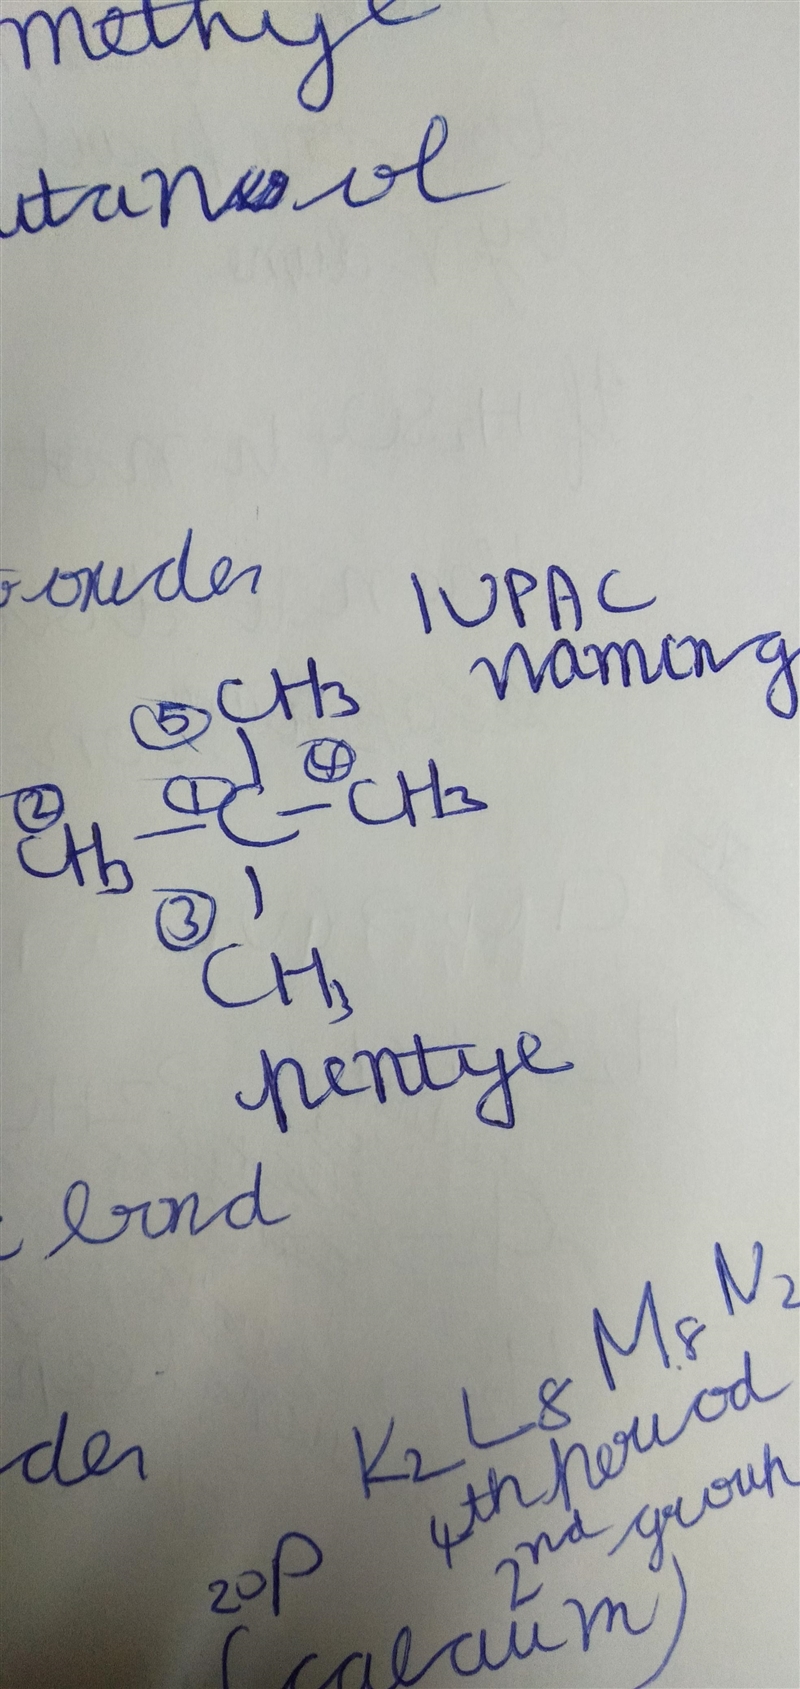 methyl
utanol
oxides
IUPAC
naming
⑤ CH3
② ① ④
CH3 - C - CH3
③
CH3
pentyl
bond
K2 L8 M8 N2
4th period
2nd group
20P
(calcium)